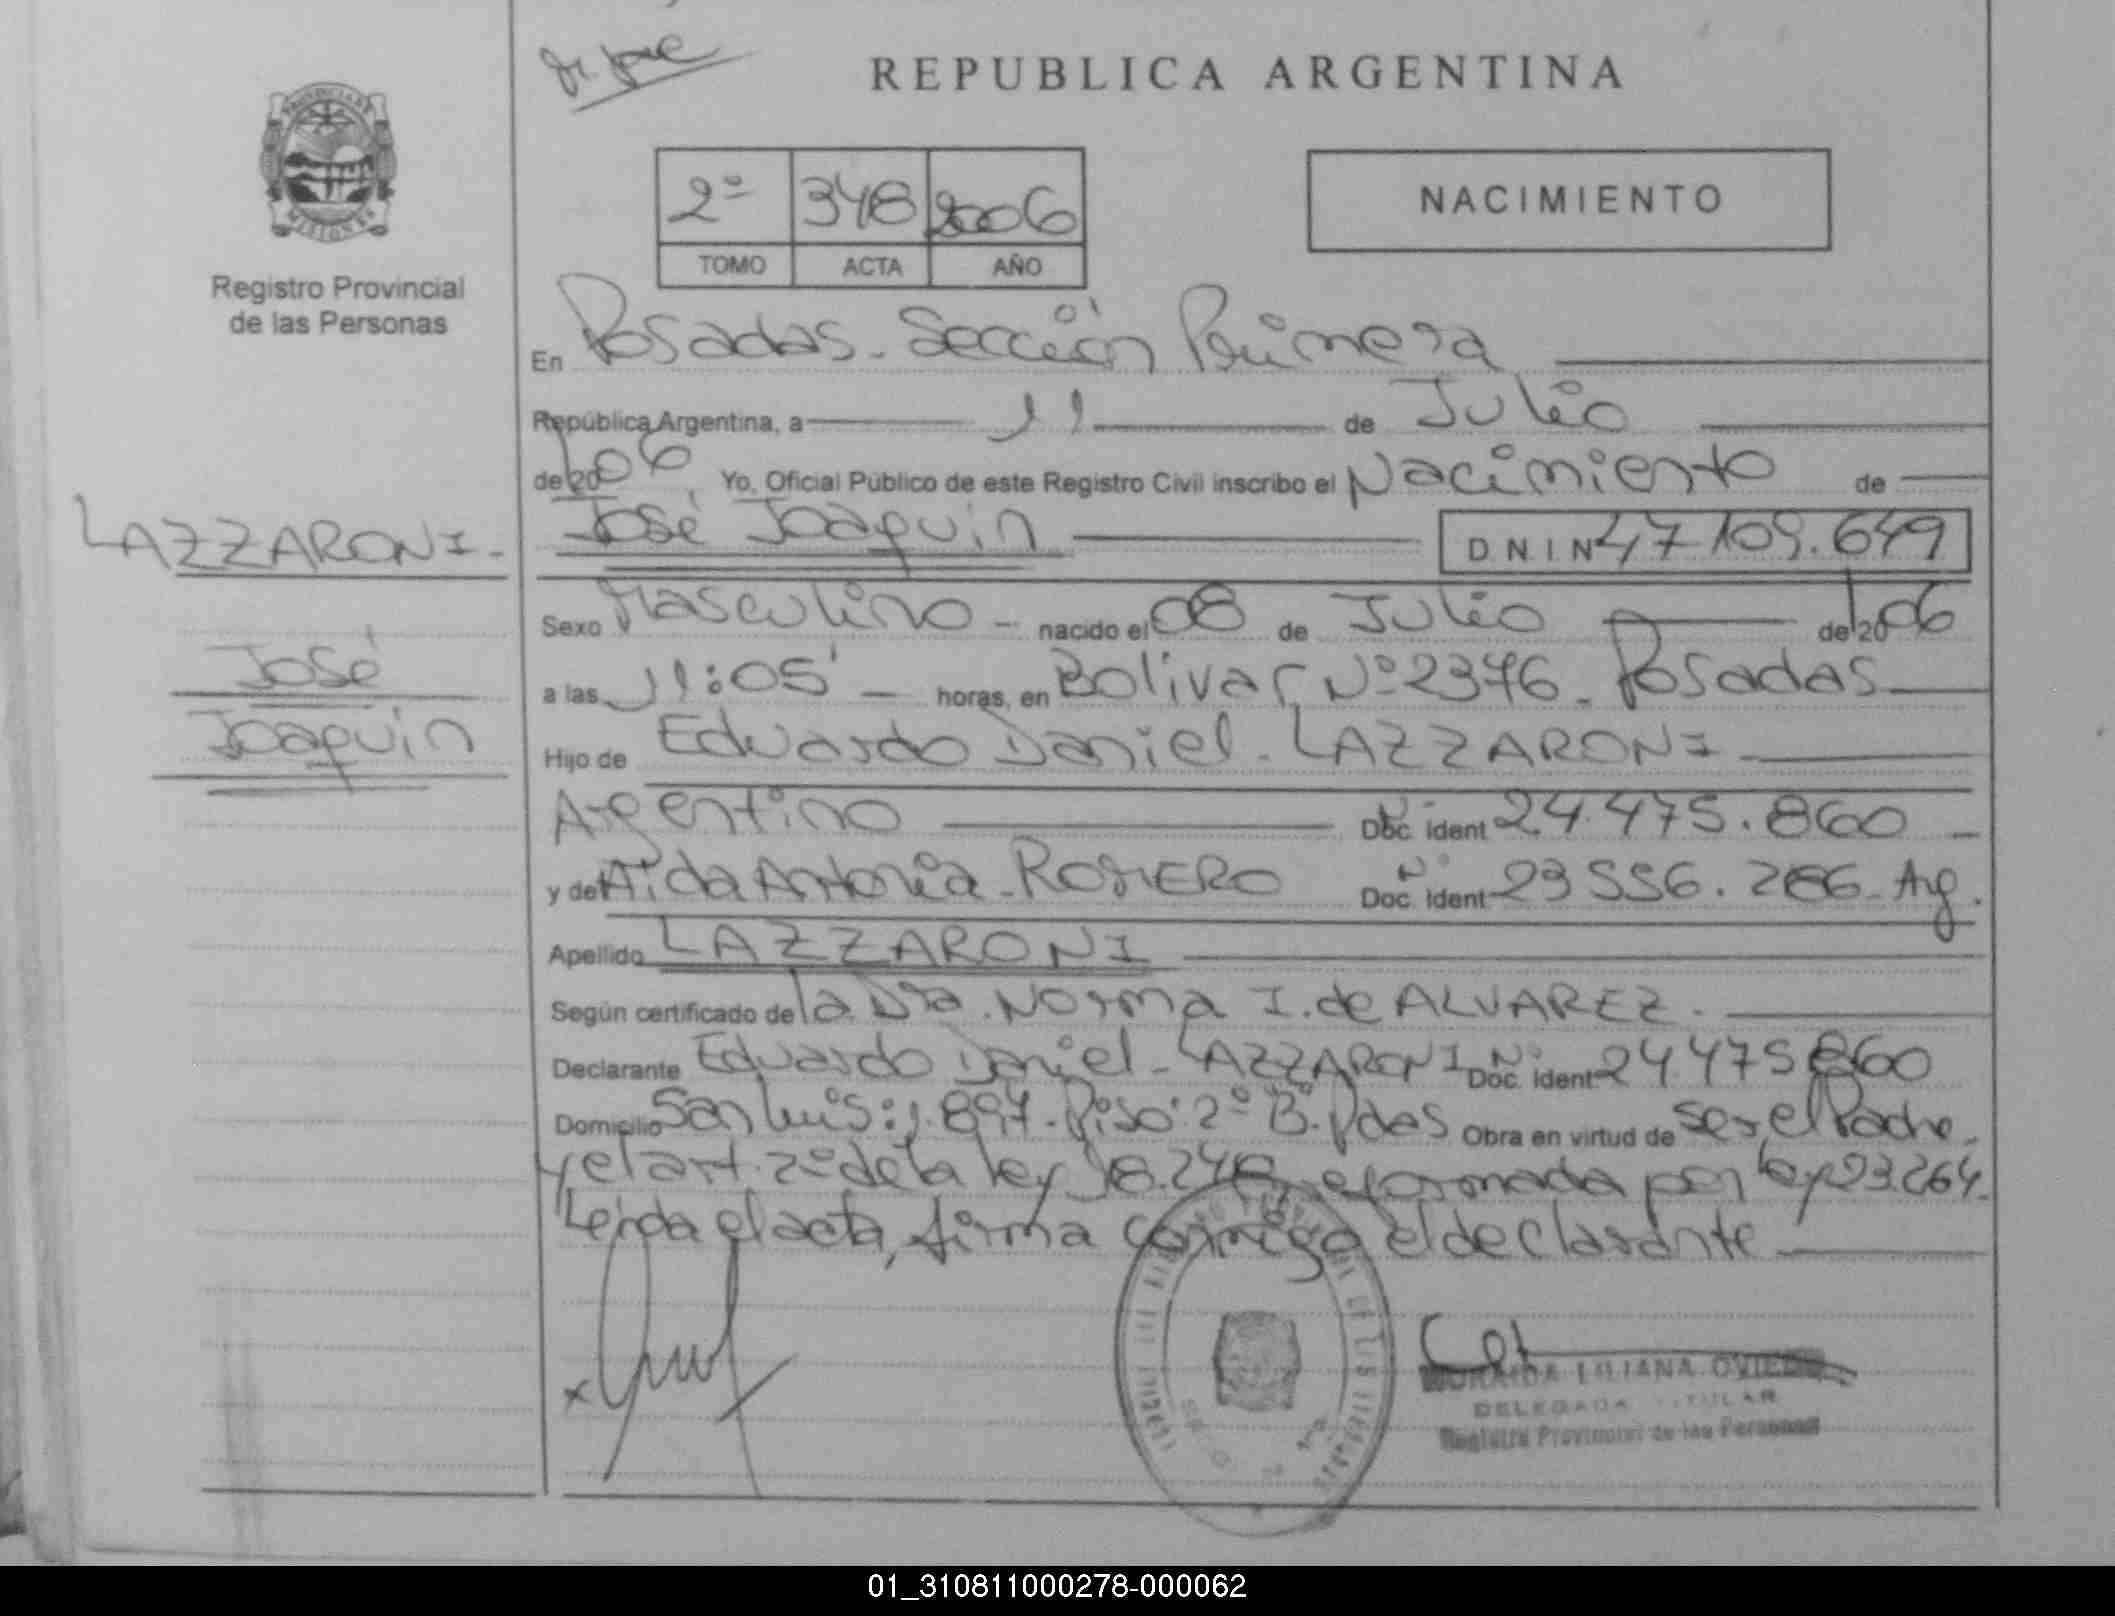 REPUBLICA ARGENTINA
PROVINCIA DE
MISIONES
Registro Provincial
de las Personas
2º 348 2006
TOMO ACTA AÑO
NACIMIENTO
En Posadas. Sección Primera
República Argentina, a 11 de Julio
de 2006 Yo, Oficial Público de este Registro Civil inscribo el Nacimiento de
LAZZARONI.
José
Joaquín
José Joaquín D.N.I. Nº 47109.649
Sexo Masculino - nacido el 08 de Julio de 2006
a las 11:05' - horas, en Bolivar Nº 2376 - Posadas
Hijo de Eduardo Daniel - LAZZARONI
Argentino Doc. Ident 24.475.860 -
y de Aida Antonia - ROMERO Doc. Ident 23 556. 266 - Arg.
Apellido LAZZARONI
Según certificado de la Dra. Norma I. de ALVAREZ.
Declarante Eduardo Daniel - LAZZARONI Nº Doc. Ident 24 475 860
Domicilio San Luis: 1.897 - Piso: 2º "B". Pdas Obra en virtud de ser el Padre.
y el art. 2º de la ley 18.248 reformada por ley 23.264.
Leída el acta, firma conmigo el declarante
x
LILIANA OVIEDO
DELEGADA TITULAR
Registro Provincial de las Personas
01_310811000278-000062